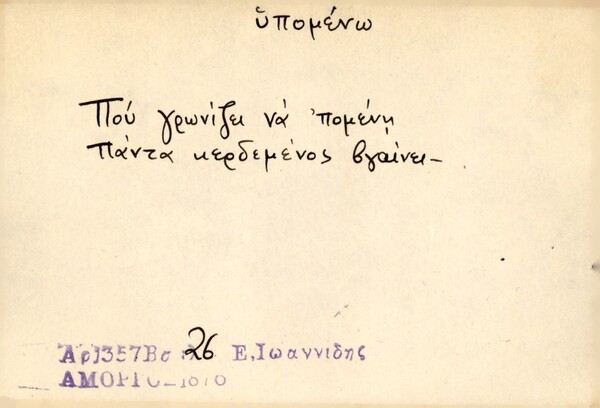 ὑπομένω
Πού γρωνίζει νά 'πομένῃ
Πάντα κερδεμένος βγαίνει –
Ἀρ1357Βσ 26 Ε.Ἰωαννιδης
ΑΜΟΡΓΟΣ 1876